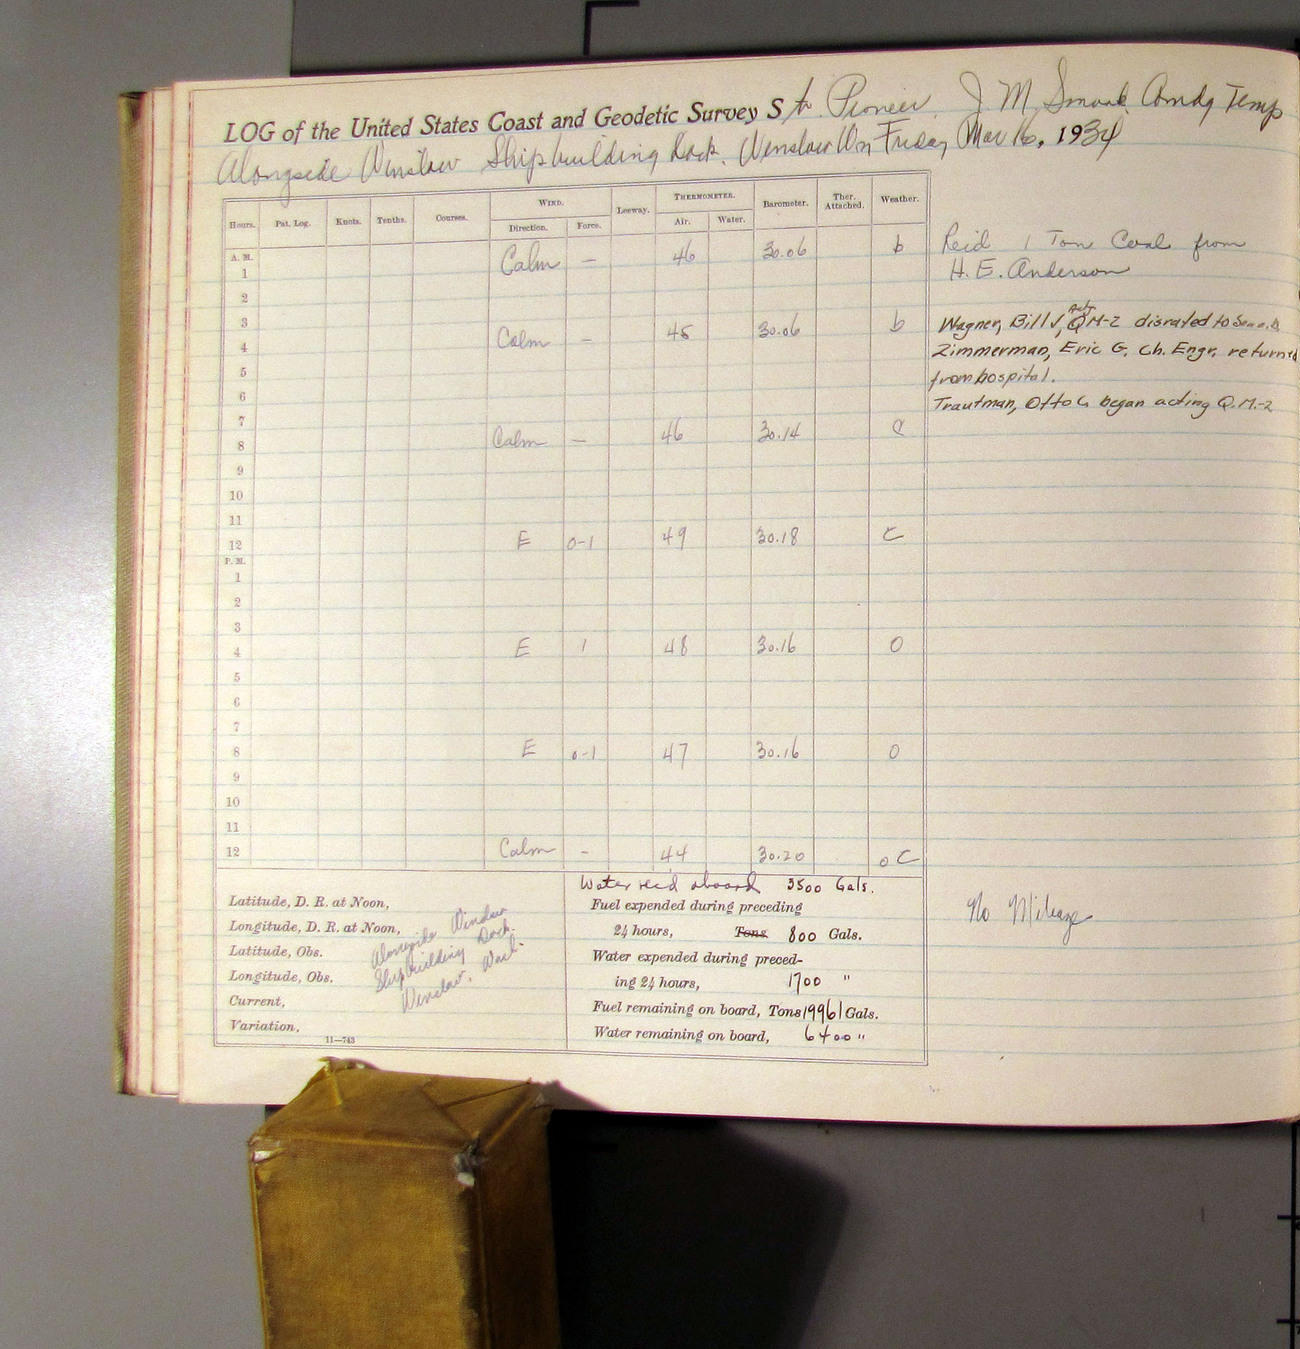 LOG of the United States Coast and Geodetic Survey Str. Pioneer, J. M. Smook Comdg Temp
Alongside Winslow Shipbuilding Dock, Winslow Wn Friday Mar 16, 1934
Hours. Pat. Log. Knots. Tenths. Courses. WIND. Leeway. THERMOMETER. Barometer. Ther. Attached. Weather.
Direction. Force. Air. Water.
A. M.
1 Calm — 46 30.06 b
2
3
4 Calm - 45 30.06 b
5
6
7
8 Calm — 46 30.14 c
9
10
11
12 E 0-1 49 30.18 c
P. M.
1
2
3
4 E 1 48 30.16 o
5
6
7
8 E 0-1 47 30.16 o
9
10
11
12 Calm - 44 30.20 oc
Recd 1 Ton Coal from
H. E. Anderson
Wagner, Bill J, Actg QM-2 disrated to
Zimmerman, Eric G. Ch. Engr. returned
from hospital.
Trautman, Otto G began acting Q.M.-2
No Mileage
Latitude, D. R. at Noon,
Longitude, D. R. at Noon,
Latitude, Obs.
Longitude, Obs.
Current,
Variation,
Alongside Winslow
Shipbuilding Dock.
Winslow, Wash.
11—743
Water rec'd aboard 3500 Gals.
Fuel expended during preceding
24 hours, Tons 800 Gals.
Water expended during preced-
ing 24 hours, 1700 "
Fuel remaining on board, Tons 19961 Gals.
Water remaining on board, 6400 "